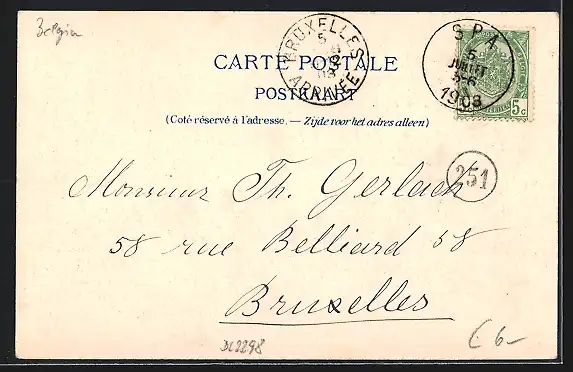 Belgien
BRUXELLES
5
08
ARRIVÉE
SPA
5
JUILLET
5-6
1908
5c
CARTE POSTALE
POSTKAART
(Coté réservé à l'adresse. — Zijde voor het adres alleen)
251
Monsieur Th. Gerlach
58 rue Belliard 58
Bruxelles
€ 6-